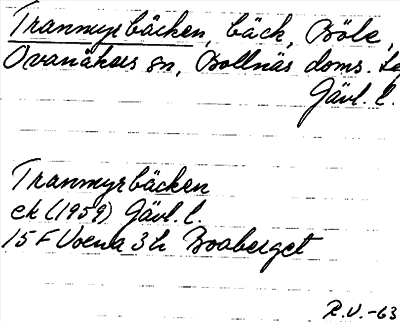 Tranmyrbäcken, bäck, Böle,
Ovanåkers sn, Bollnäs doms.
Gävl. l.
Tranmyrbäcken
ek (1959) Gävl. l.
15 F Voxna 3 h Boaberget
R.V.-63